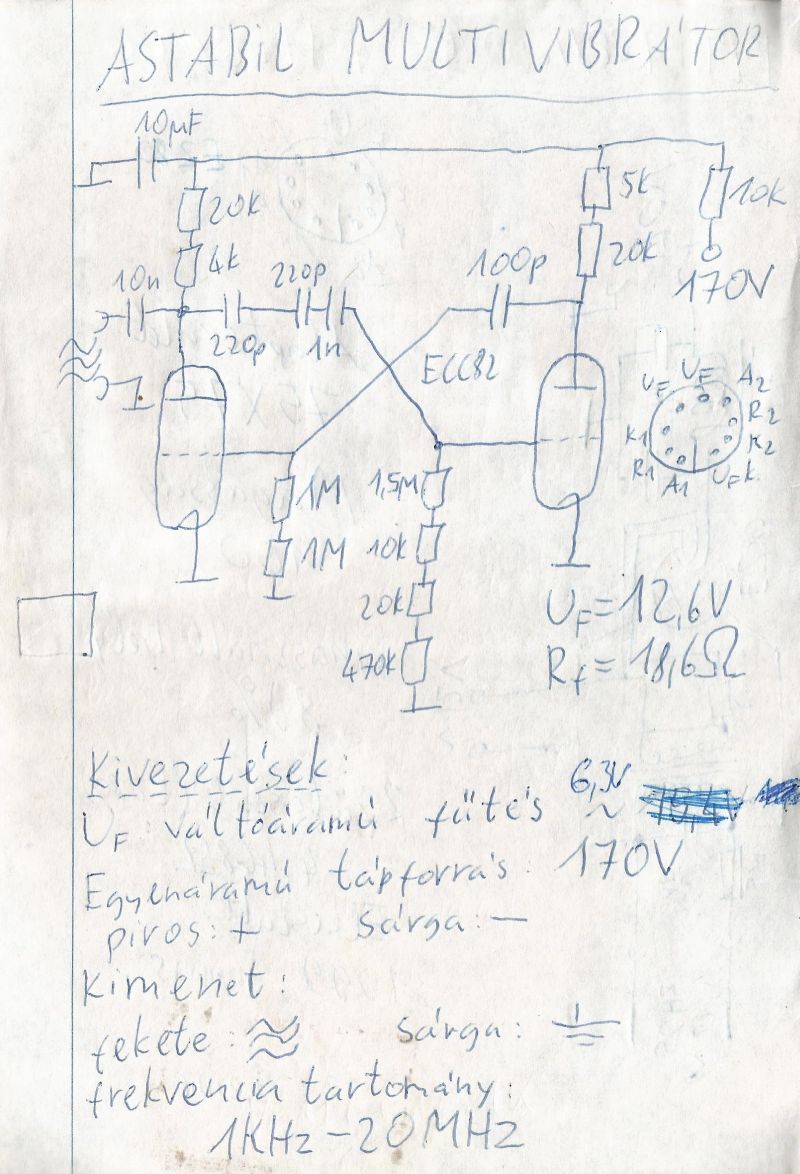 ASTABIL MULTIVIBRÁTOR
10µF
20k
5k
10k
4k
20k
170V
10n
220p
100p
220p
1n
ECC82
UF UF A2
R2
K1
K2
R1
A1
UFK.
1M
1,5M
1M
10k
20k
470k
UF=12,6V
Rf=18,6Ω
Kivezetések:
6,3V
UF váltóáramú fűtés ~
Egyenáramú tápforrás: 170V
piros: + sárga: —
Kimenet:
fekete: sárga:
frekvencia tartomány:
1KHz-20MHz